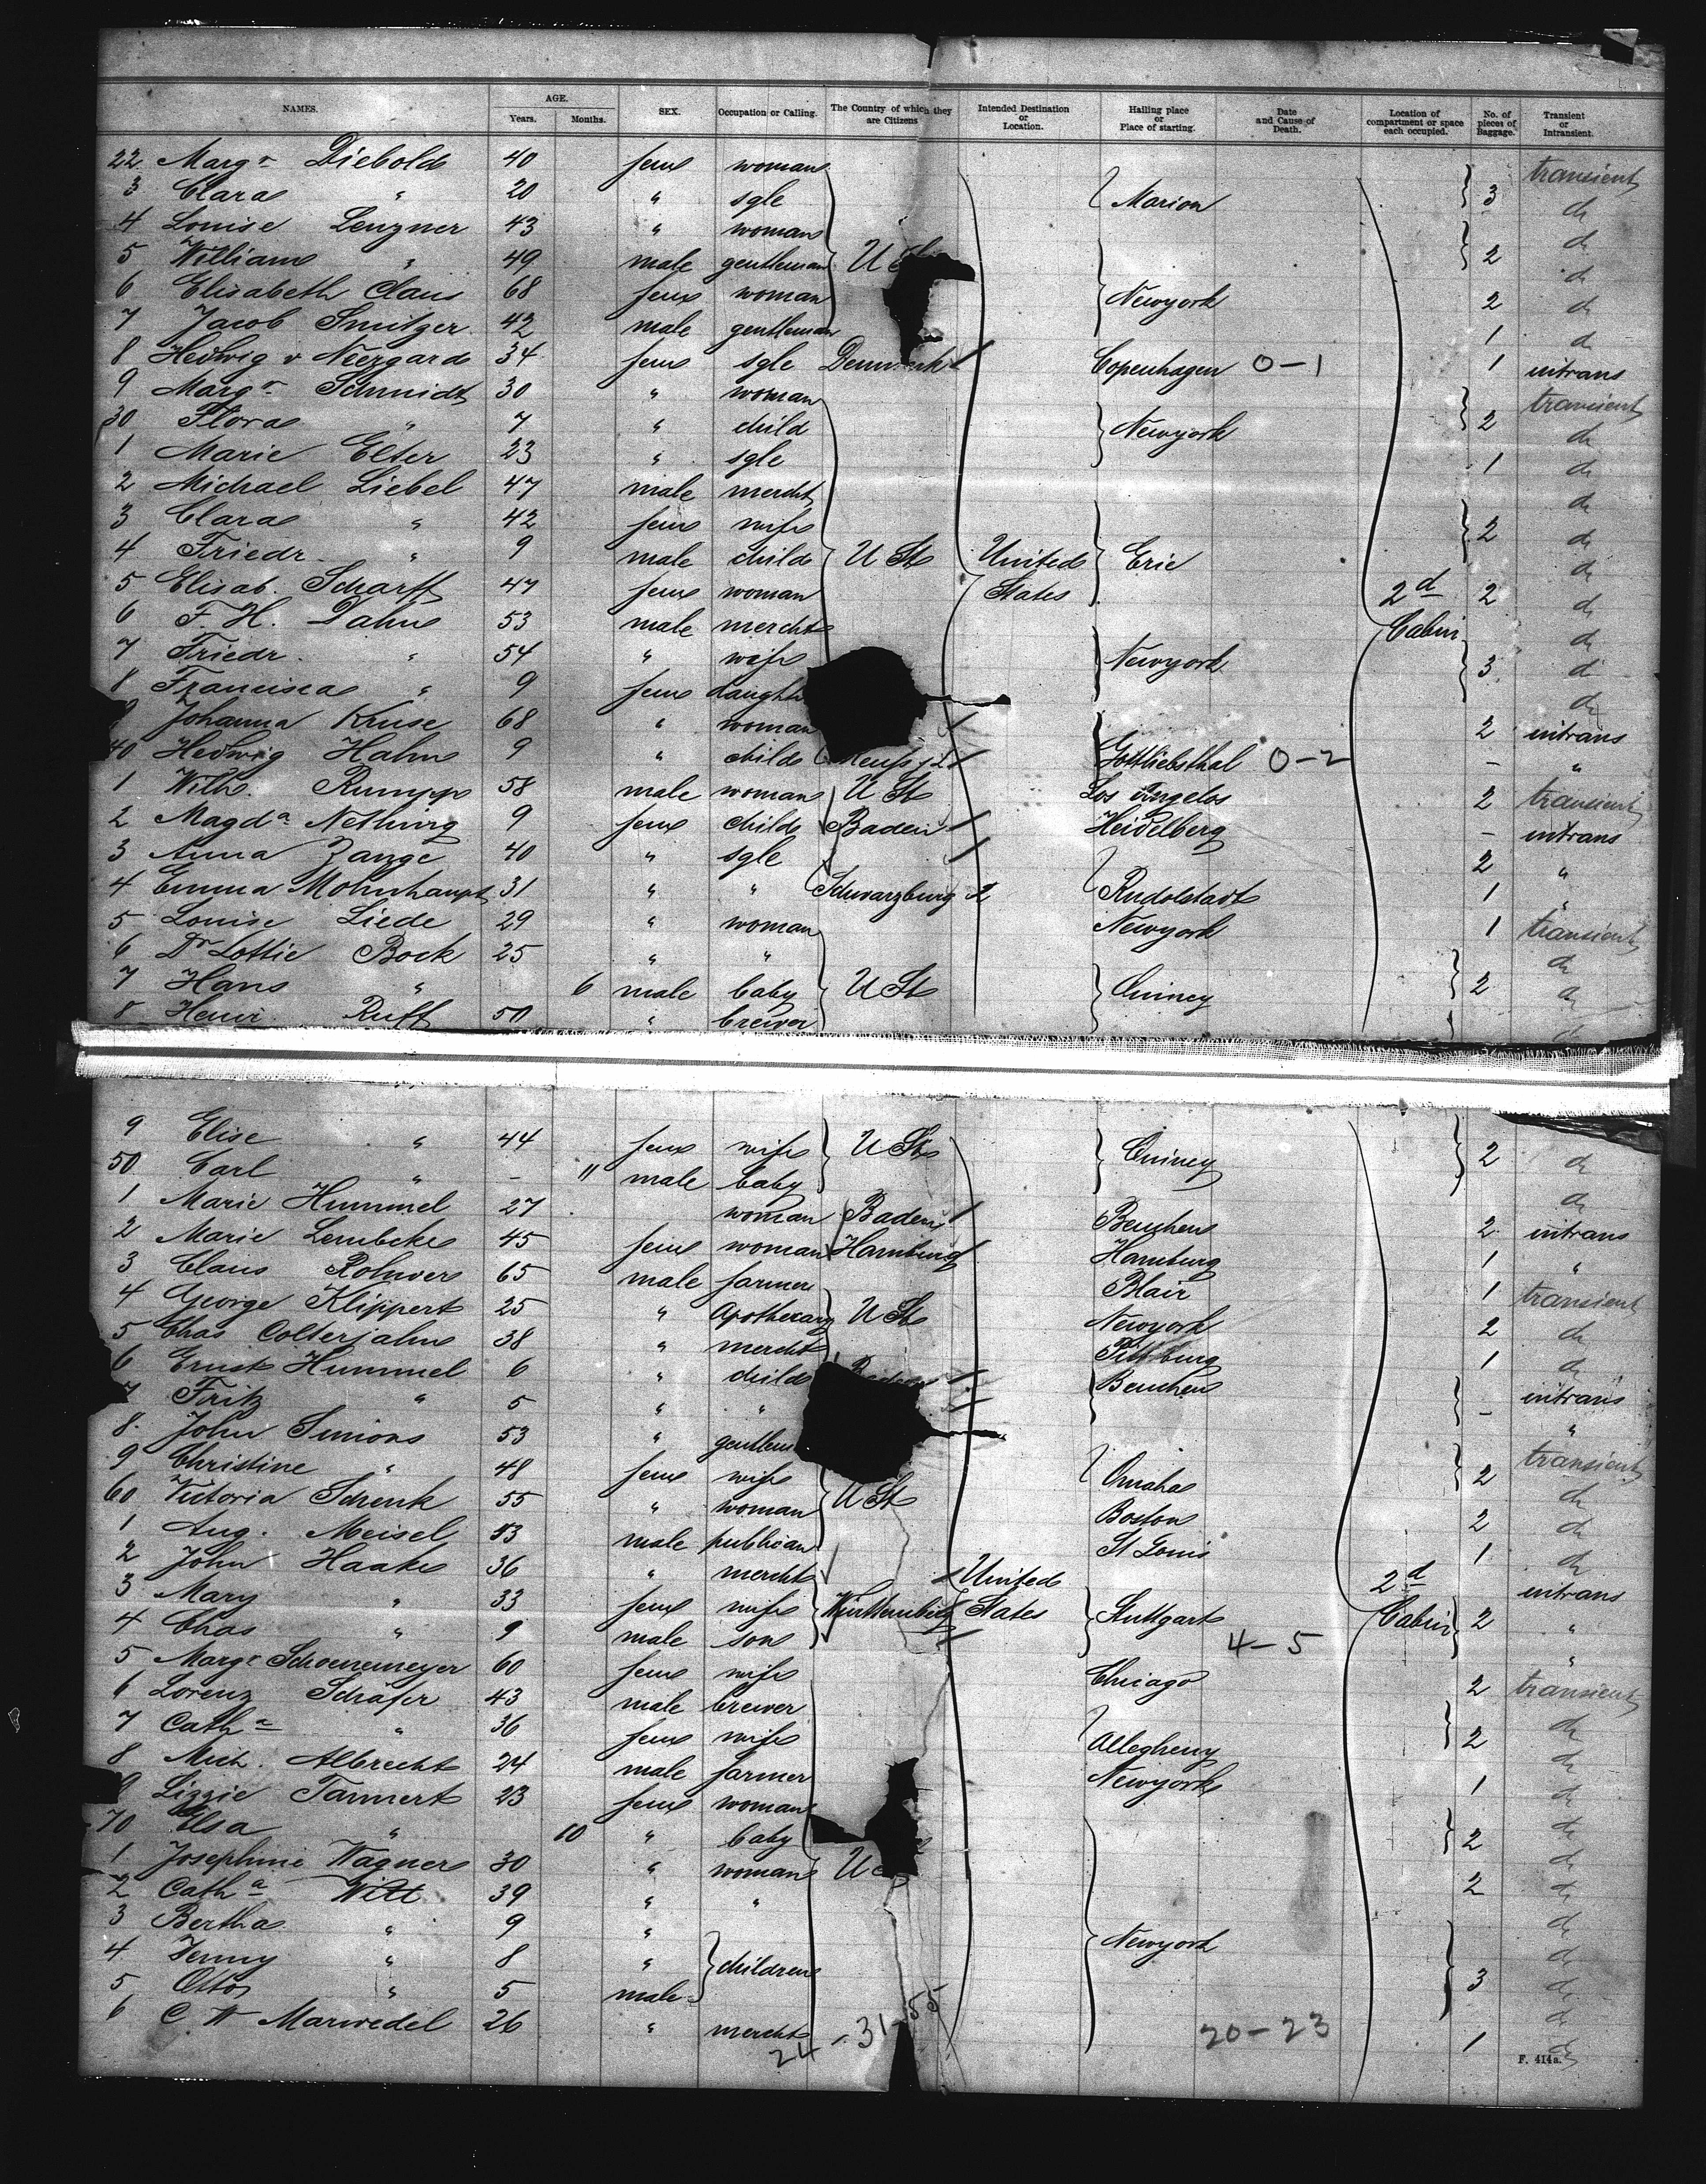 NAMES. AGE. Years. Months. SEX. Occupation or Calling. The Country of which they are Citizens Intended Destination or Location. Hailing place or Place of starting. Date and Cause of Death. Location of compartment or space each occupied. No. of pieces of Baggage. Transient or Intransient.
22 Margr Diebold 40 fem woman transient
3 Clara " 20 " sgle Marion 3 do
4 Louise Lenzner 43 " woman do
5 William " 49 male gentleman U 2 do
6 Elisabeth Claus 68 fem woman Newyork 2 do
7 Jacob Smitzer 42 male gentleman 1 do
8 Hedwig v Neergard 34 fem sgle Denmark Copenhagen 0-1 1 intrans
9 Margr Schmidt 30 " woman transient
30 Flora " 7 " child Newyork 2 do
1 Marie Elter 23 " sgle 1 do
2 Michael Liebel 47 male mercht do
3 Clara " 42 fem wife 2 do
4 Friedr " 9 male child U St United Erie do
5 Elisab. Scharff 47 fem woman States 2d 2 do
6 F. H. Dahm 53 male mercht Cabin do
7 Friedr. " 54 " wife Newyork 3 do
8 Francisca " 9 fem do
Johanna Kruse 68 " woman 2 intrans
40 Hedwig Hahn 9 " child Gottliebsthal 0-2 - "
1 Wilh. Rumpp 58 male woman U St Los Angelos 2 transient
2 Magda Nething 9 fem child Baden Heidelberg - intrans
3 Anna Zange 40 " sgle 2 "
4 Emma Mohnhaupt 31 " " Schwarzburg 2 Rudolstadt 1 "
5 Louise Liede 29 " woman Newyork 1 transient
6 Dr Lottie Bock 25 " " do
7 Hans " 6 male baby U St Quincy 2 do
8 Henri Ruff 50 " brewer
9 Elise " 44 fem wife U St Quincy 2 do
50 Carl " - 11 male baby do
1 Marie Hummel 27 woman Baden 2 intrans
2 Marie Lembcke 45 fem woman Hamburg Hamburg 1 "
3 Claus Rohwer 65 male farmer Blair 1 transient
4 George Klippert 25 " Apothecary U St Newyork 2 do
5 Chas Oolterjahn 38 " mercht Pittsburg 1 do
6 Ernst Hummel 6 " child intrans
7 Fritz " 5 " " - "
8 John Simons 53 " transient
9 Christine " 48 fem wife Omaha 2 do
60 Victoria Schenk 55 " woman U St Boston 2 do
1 Aug. Meisel 53 male publican St Louis 1 do
2 John Haake 36 " mercht United 2d intrans
3 Mary " 33 fem wife Württemberg States Stuttgart Cabin 2 "
4 Chas " 9 male son 4-5 "
5 Margr Schoenemeyer 60 fem wife Chicago 2 transient
6 Lorenz Schäfer 43 male brewer do
7 Catha " 36 fem wife Allegheny 2 do
8 Mich. Albrecht 24 male farmer Newyork 1 do
9 Lizzie Tannert 23 fem woman do
70 Elsa " 10 " baby 2 do
1 Josephine Wagner 30 " woman U 2 do
2 Catha Witt 39 " " do
3 Bertha " 9 " Newyork do
4 Jenny " 8 " children 3 do
5 Otto " 5 male do
6 C W Marwedel 26 " mercht 1 do
24-31-55 20-23
F. 414a.